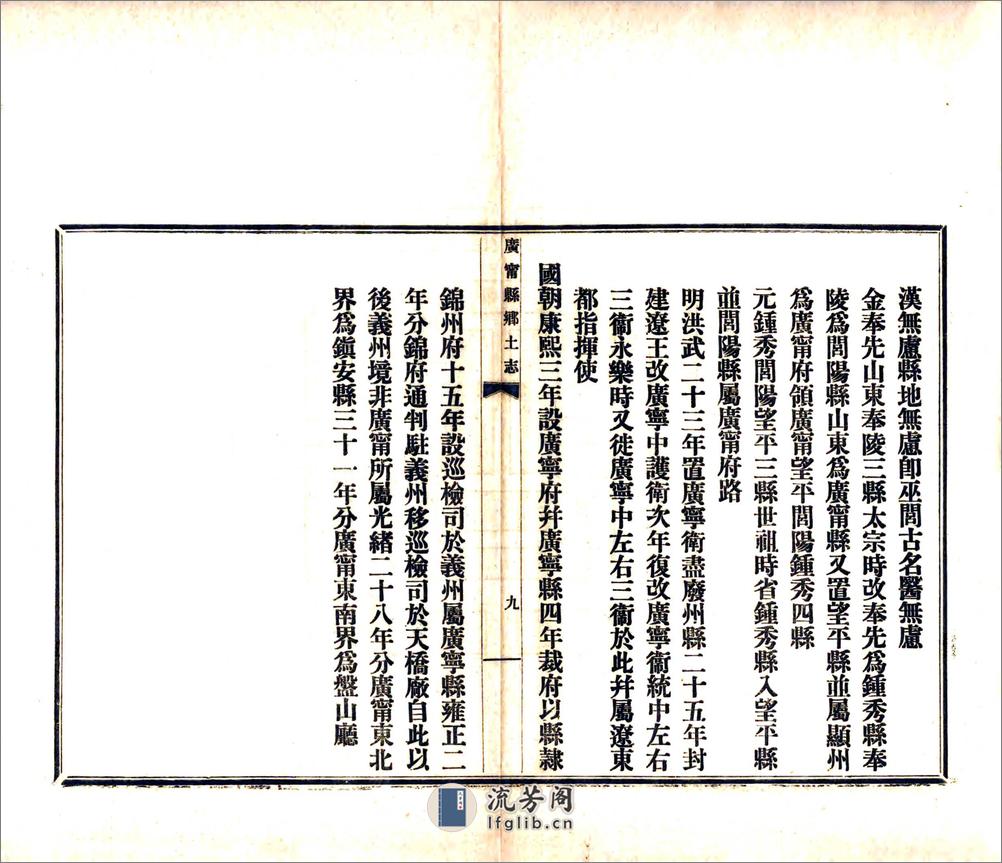 漢無慮縣地無慮卽巫閭古名醫無慮
金奉先山東奉陵三縣太宗時改奉先爲鍾秀縣奉
陵爲閭陽縣山東爲廣甯縣又置望平縣並屬顯州
爲廣甯府領廣甯望平閭陽鍾秀四縣
元鍾秀閭陽望平三縣世祖時省鍾秀縣入望平縣
並閭陽縣屬廣甯府路
明洪武二十三年置廣寧衛盡廢州縣二十五年封
建遼王改廣寧中護衛次年復改廣寧衞統中左右
三衞永樂時又徙廣寧中左右三衞於此幷屬遼東
都指揮使
國朝康熙三年設廣寧府幷廣寧縣四年裁府以縣隷
廣甯縣鄉土志
九
錦州府十五年設巡檢司於義州屬廣寧縣雍正二
年分錦府通判駐義州移巡檢司於天橋廠自此以
後義州境非廣甯所屬光緖二十八年分廣甯東北
界爲鎭安縣三十一年分廣甯東南界爲盤山廳
流芳阁
lfglib.cn